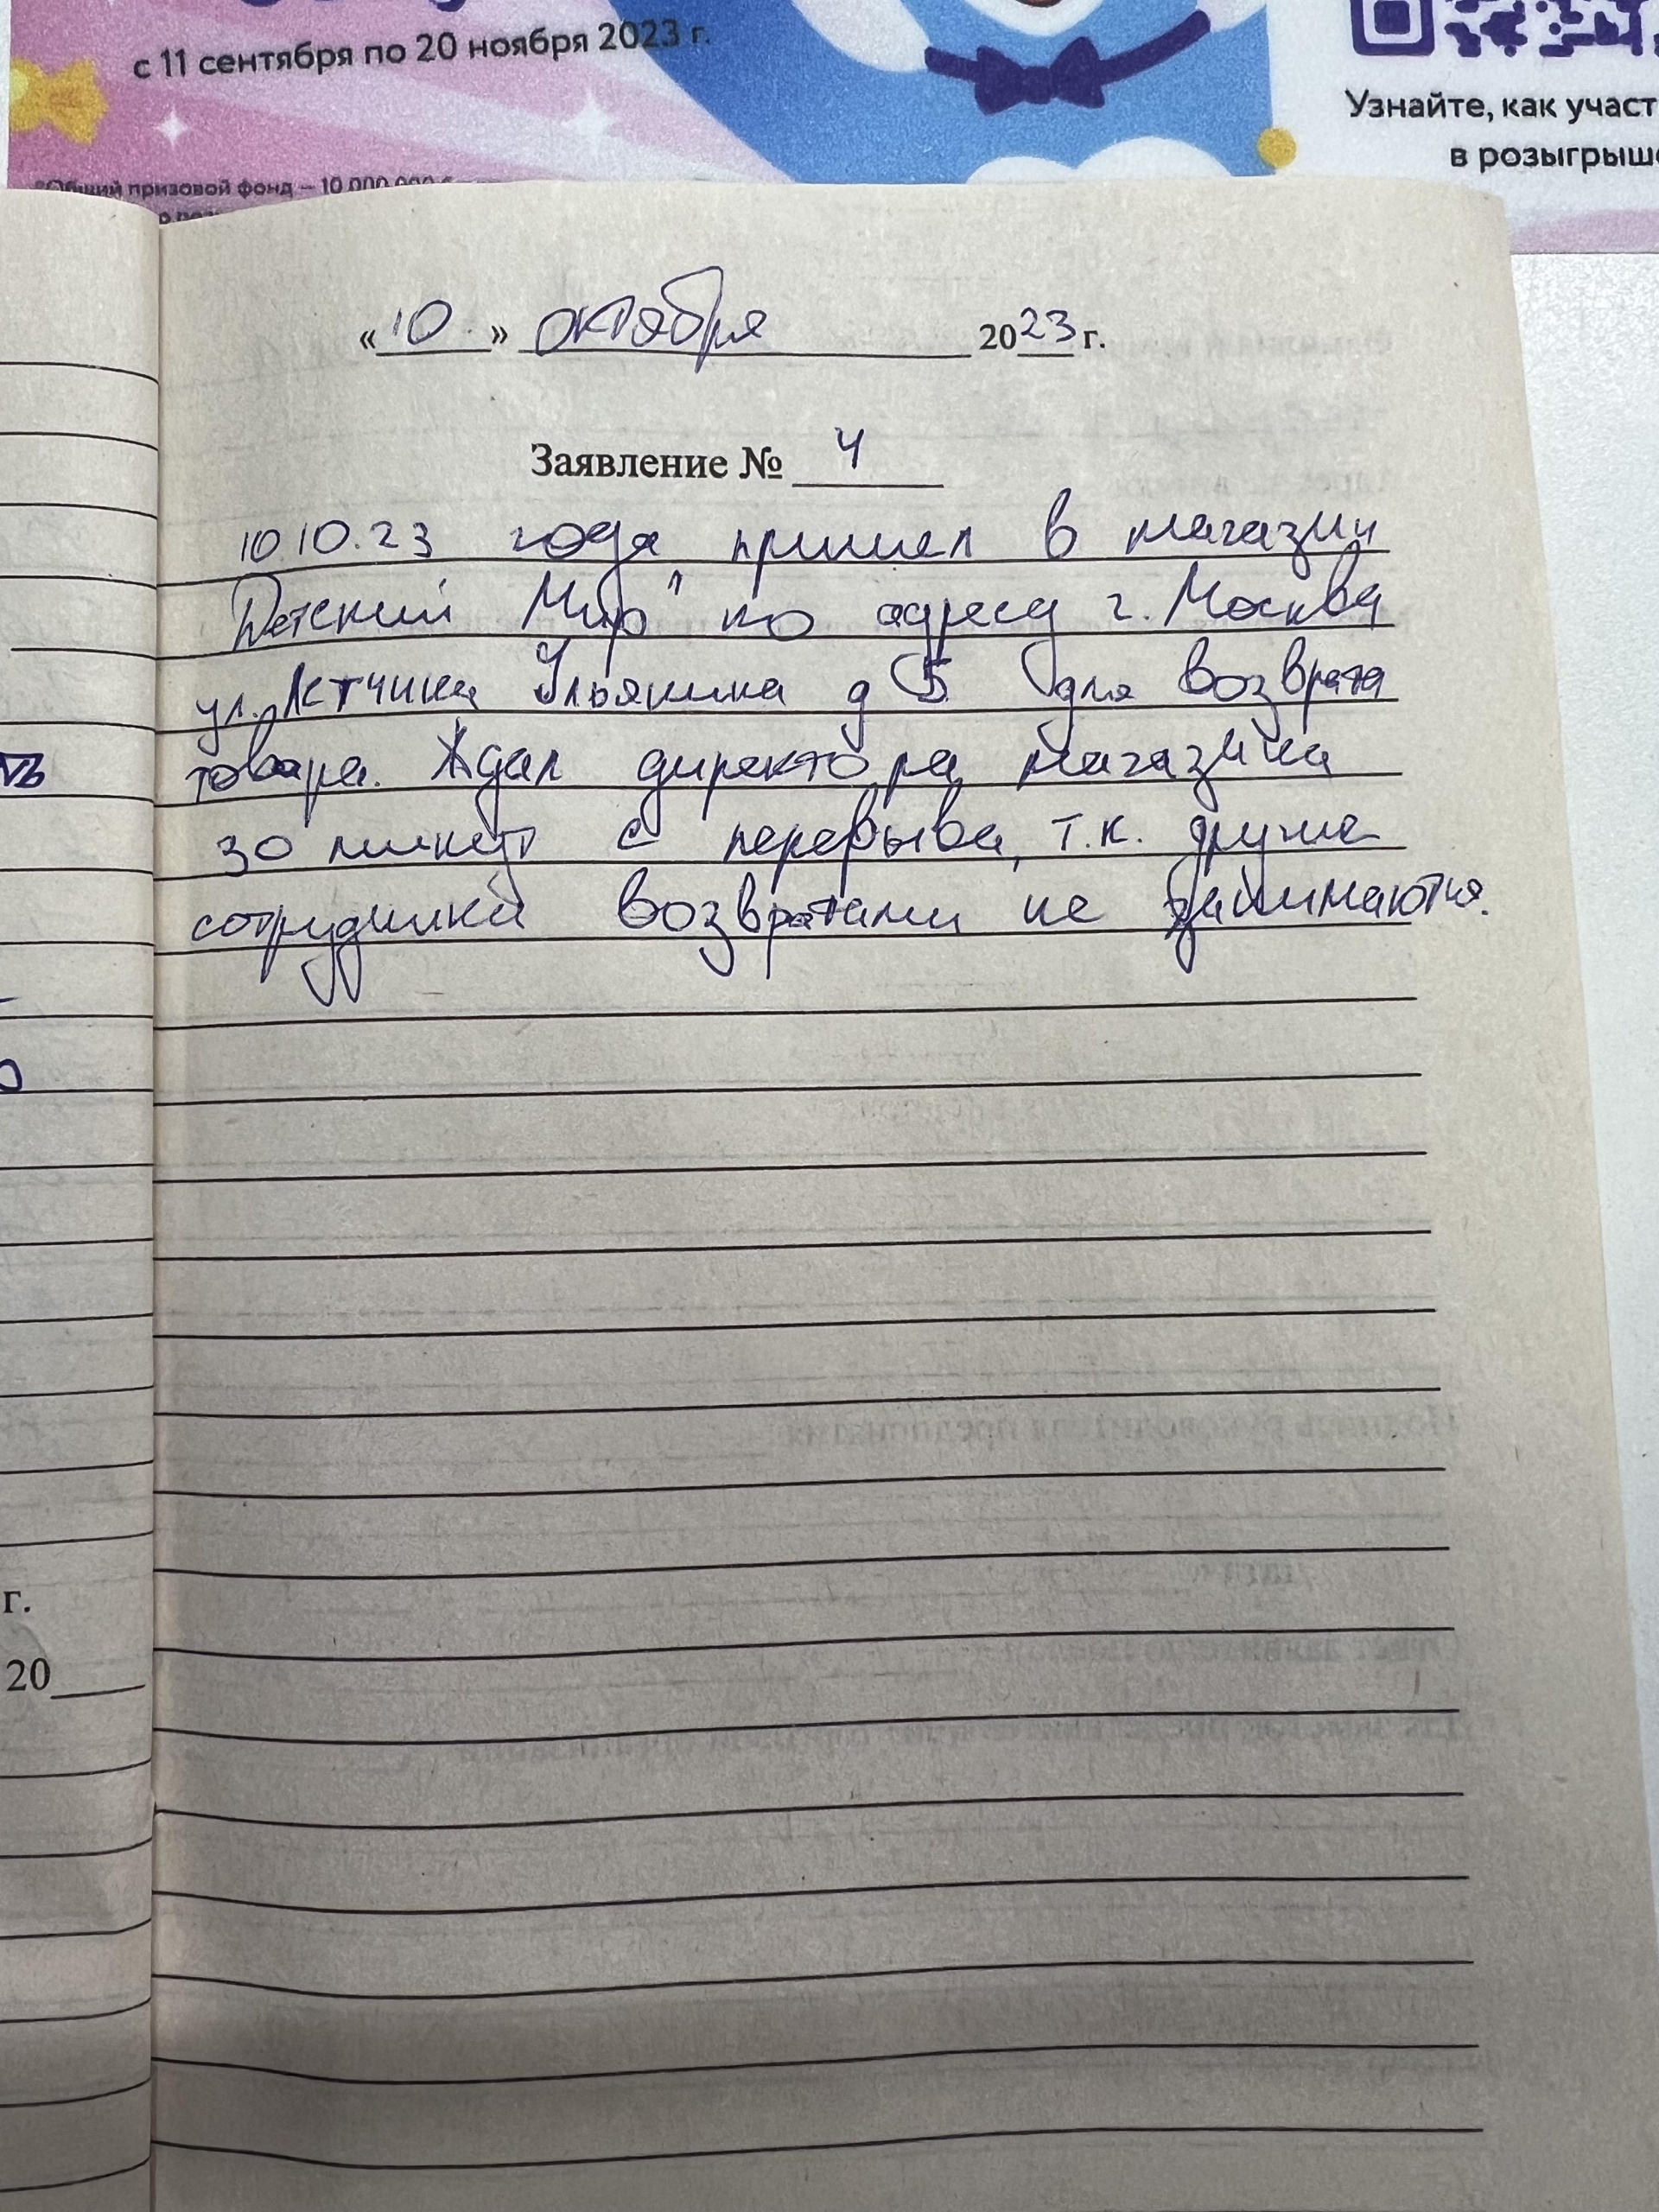 с 11 сентября по 20 ноября 2023 г.
Узнайте, как участ
в розыгрыше
*Общий призовой фонд – 10 000 000
« 10 » октября 2023 г.
Заявление № 4
10 10.23 года пришел в магазин
"Детский Мир" по адресу г. Москва
ул. Лётчика Ульянина д 5 для возврата
товара. Ждал директора магазина
30 минут с перерыва, т.к. другие
сотрудники возвратами не занимаются.
г.
20